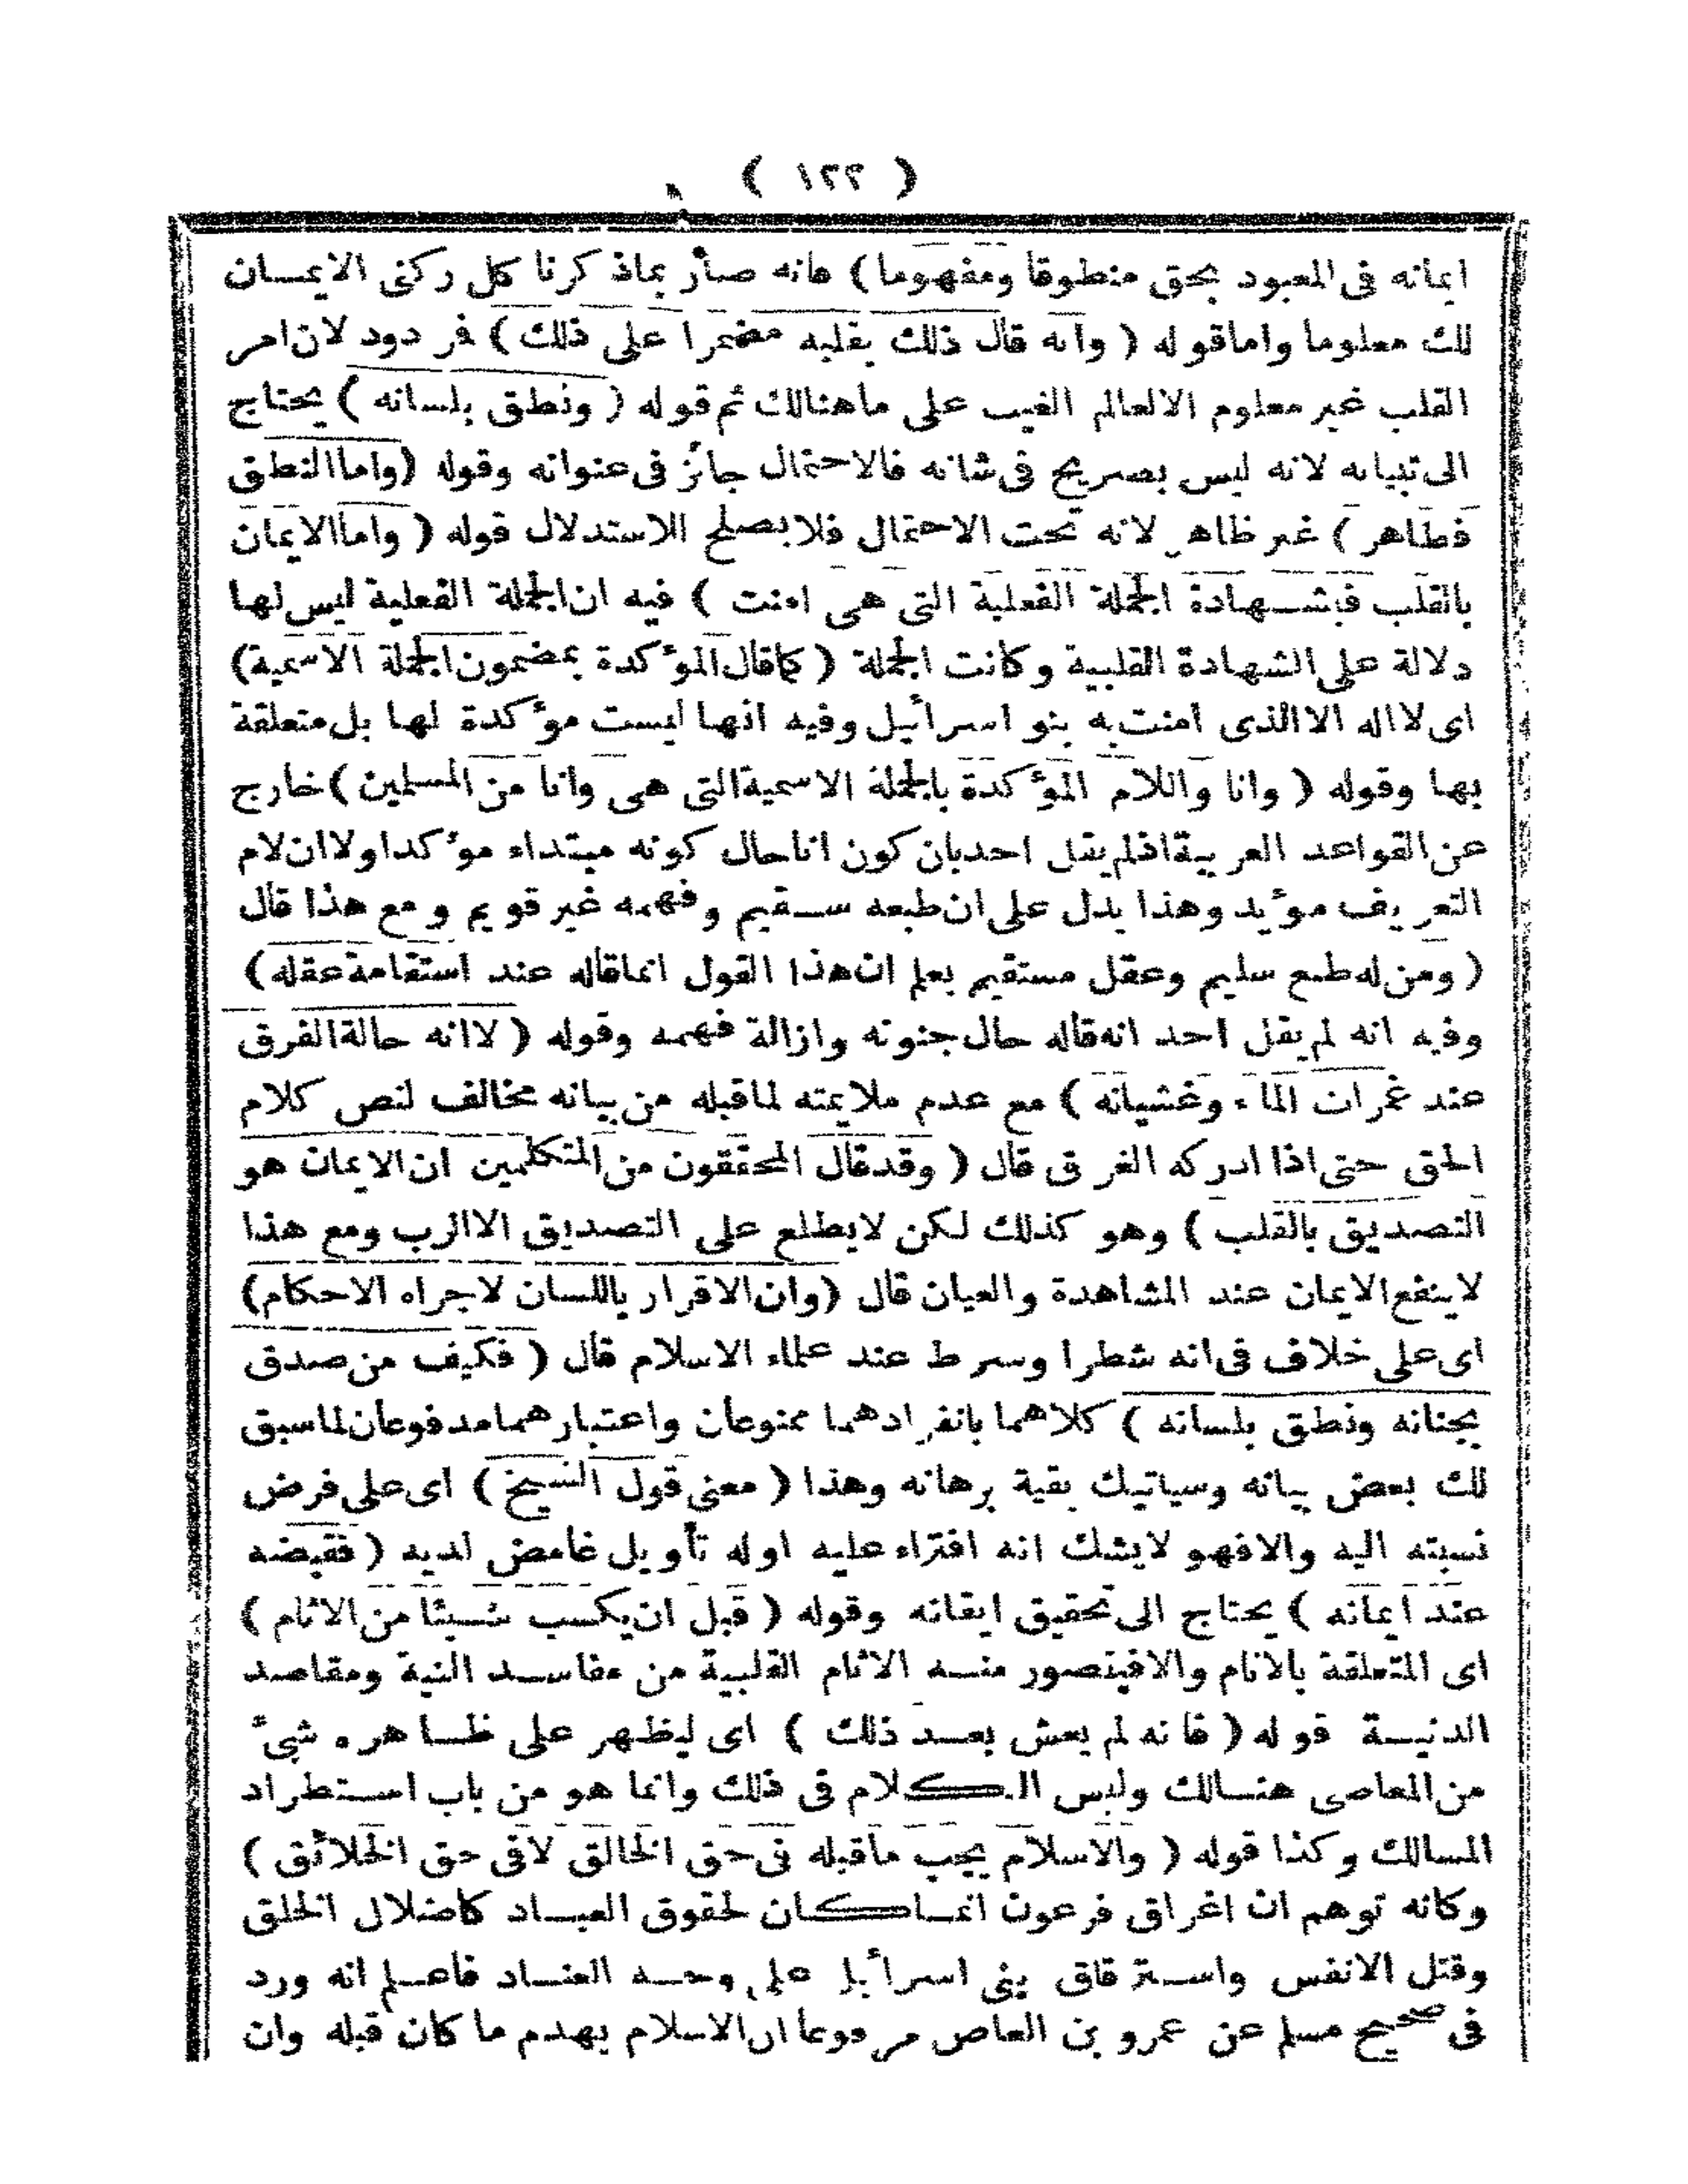 ( ١٢٢ )
ايمانه فى المعبود بحق منطوقا ومفهوما ) فانه صار بماذ كرنا كل ركنى الايمان
لك معلوما واماقوله ( وانه قال ذلك بقلبه مضمرا على ذلك ) فر دود لان امر
القلب غير معلوم الالعالم الغيب على ماهنالك ثم قوله ( ونطق بلسانه ) يحتاج
الى تبيانه لانه ليس بصريح فى شانه فالاحتمال جائز فى عنوانه وقوله (واما النطق
فظاهر ) غير ظاهر لانه تحت الاحتمال فلا يصلح الاستدلال قوله ( واما الايمان
بالقلب فبشهادة الجملة الفعلية التى هى امنت ) فيه ان الجملة الفعلية ليس لها
دلالة على الشهادة القلبية وكانت الجملة ( كماقال المؤكدة بمضمون الجملة الاسمية)
اى لااله الا الذى امنت به بنو اسرائيل وفيه انها ليست مؤكدة لها بل متعلقة
بها وقوله ( وانا واللام المؤكدة بالجملة الاسمية التى هى وانا من المسلمين ) خارج
عن القواعد العربية اذلم يقل احد بان كون انا حال كونه مبتداء مؤكدا ولا ان لام
التعريف مؤيد وهذا يدل على ان طبعه سقيم وفهمه غير قويم و مع هذا قال
( ومن له طبع سليم وعقل مستقيم يعلم ان هذا القول انماقاله عند استقامة عقله )
وفيه انه لم يقل احد انه قاله حال جنونه وازالة فهمه وقوله ( لا انه حالة الغرق
عند غمرات الماء وغشيانه ) مع عدم ملايمته لماقبله من بيانه مخالف لنص كلام
الحق حتى اذا ادركه الغرق قال ( وقد قال المحققون من المتكلمين ان الايمان هو
التصديق بالقلب ) وهو كذلك لكن لايطلع على التصديق الا الرب ومع هذا
لاينفع الايمان عند المشاهدة والعيان قال (وان الاقرار باللسان لاجراه الاحكام)
اى على خلاف فى انه شطرا وسرط عند علماء الاسلام قال ( فكيف من صدق
بجنانه ونطق بلسانه ) كلاهما بانفرادهما ممنوعان واعتبارهما مدفوعان لماسبق
لك بعض بيانه وسياتيك بقية برهانه وهذا ( معنى قول الشيخ ) اى على فرض
نسبته اليه والافهو لايشك انه افتراء عليه اوله تأويل غامض لديه ( فقبضه
عند ايمانه ) يحتاج الى تحقيق ايقانه وقوله ( قبل ان يكسب شيئا من الاثام )
اى المتعلقة بالانام والافيتصور منه الاثام القلبية من مفاسد النية ومقاصد
الدنية قوله ( فانه لم يعش بعد ذلك ) اى ليظهر على ظاهره شئ
من المعاصى هنالك وليس الكلام فى ذلك وانما هو من باب استطراد
المسالك وكذا قوله ( والاسلام يجب ماقبله فى حق الخالق لافى حق الخلائق )
وكانه توهم ان اغراق فرعون انماكان لحقوق العباد كاضلال الخلق
وقتل الانفس واسترقاق بنى اسرائيل على وجه العناد فاعلم انه ورد
فى صحيح مسلم عن عمرو بن العاص مرفوعا ان الاسلام يهدم ما كان قبله وان